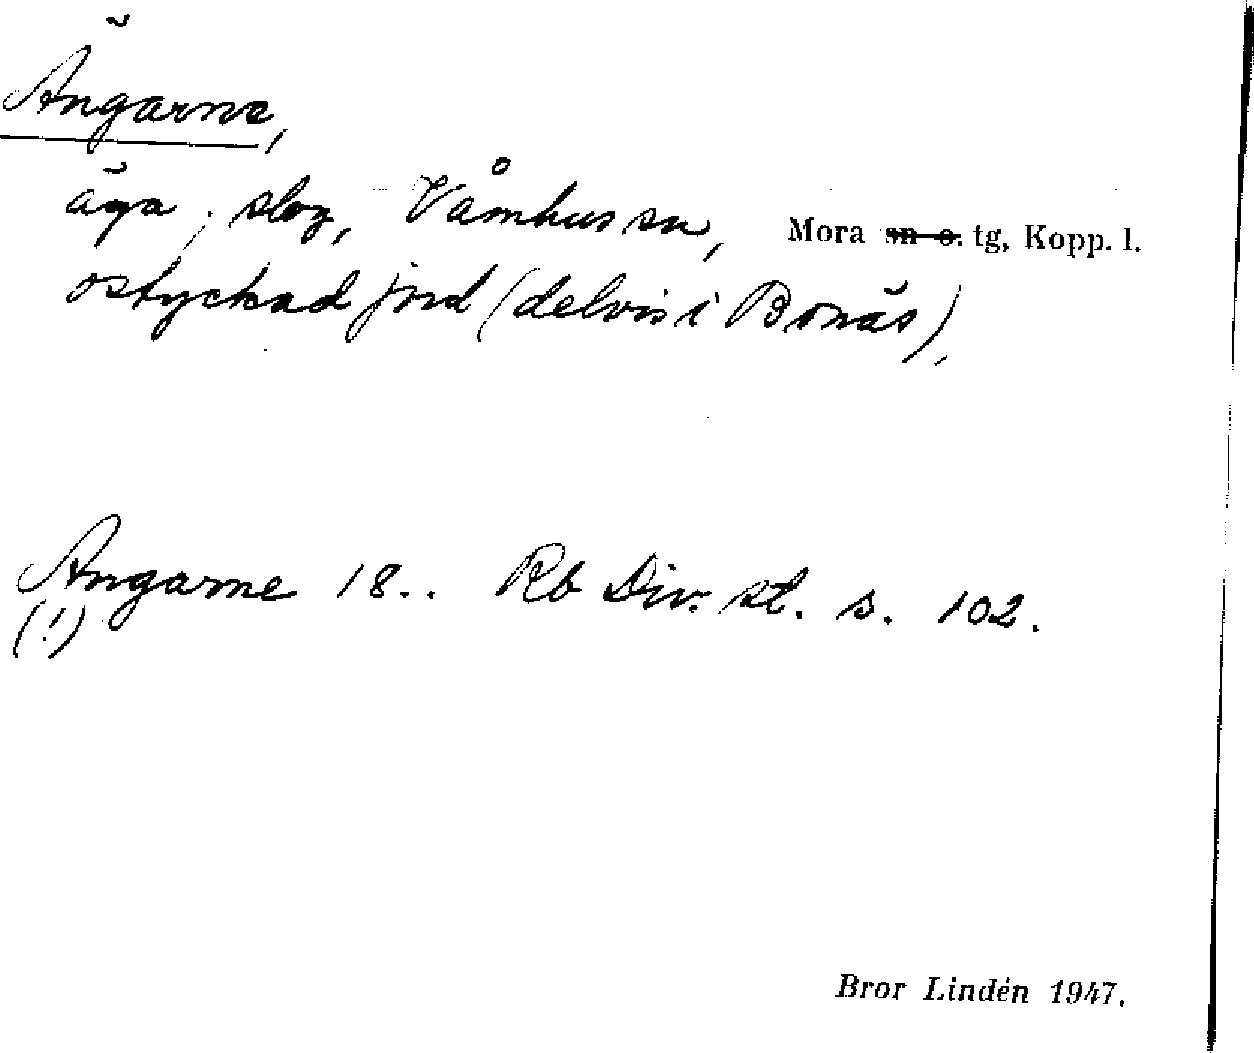 Ängarna,
äga, slog, Våmhus sn, Mora sn o. tg, Kopp. l.
ostyckad jord (delvis i Bonäs),
Angarne 18.. Rb Div. st. s. 102.
(!)
Bror Lindén 1947.